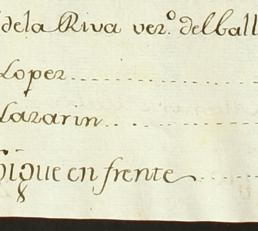 dela Riva verº. delball
Lopez
Lazarin
Sigue en frente